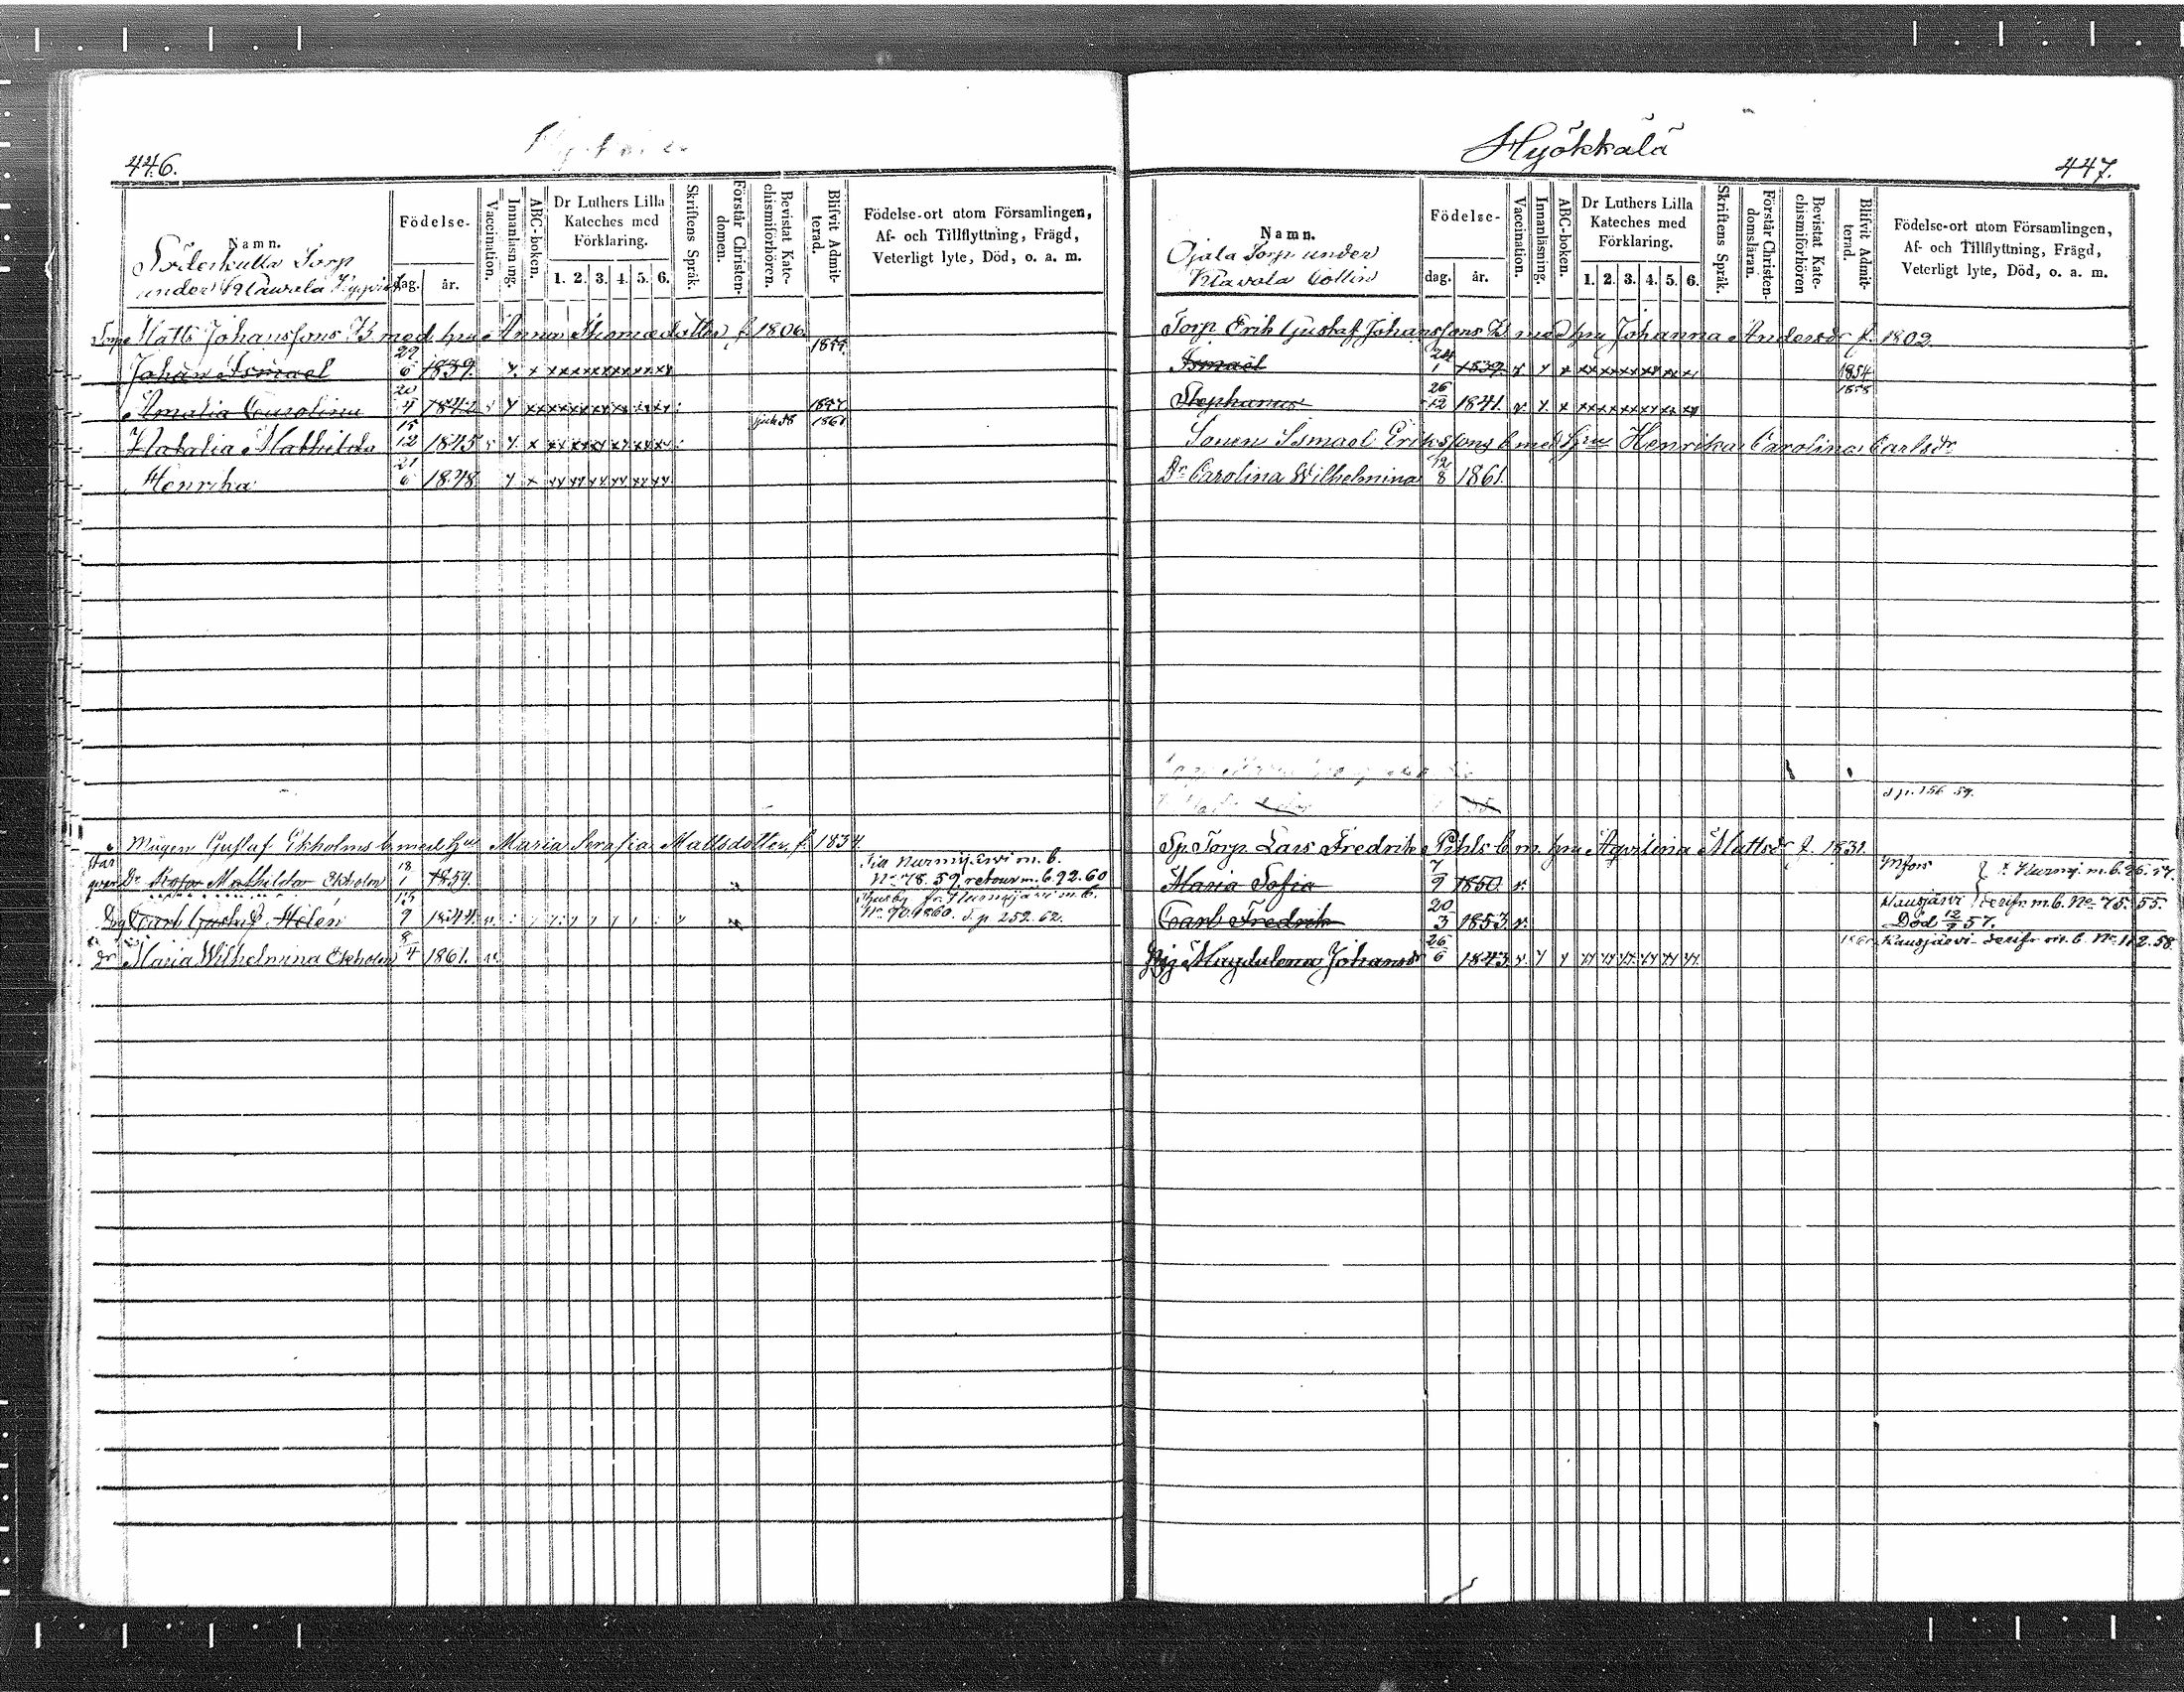 446.
Namn.
Söderkulla Torp
under Klaurela
Födelse-
dag.
år.
Vaccination.
Innanläsning.
ABC-boken.
Dr Luthers Lilla
Kateches med
Förklaring.
1. 2. 3. 4. 5. 6.
Skriftens Språk.
Förstår Christen-
domen.
Bevistat Kate-
chismiförhören.
Blifvit Admit-
terad.
Födelse-ort utom Församlingen,
Af- och Tillflyttning, Frägd,
Veterligt lyte, Död, o. a. m.
Torp Matts Johanssons B med hru Anna Thomædotter, f. 1806
Johan Ismael 29/6 1839. x xxxxxxxxxxxx
Amalia Carolina 20/4 1842 1857
Natalia Mathilda 15/12 1845 1861
Henrika 21/6 1848
Mågen Gustaf Ekholms b. med hru Maria Serafia Mattsdotter, f. 1834
Dr Rosa Mathilda Ekholm 18/1 1859. Till Nurmijärvi m. b.
No 78. 59, retour m. b. 92. 60
Drg Carl Gustaf Helén 9 1844. fr. Nurmijärvi m. b.
No. 70. 1860. S. p. 252. 62.
Dr Maria Wilhelmina Ekholm 8/4 1861.
Hyökkälä
447.
Namn.
Ojala Torp under
Klavola Collin
Födelse-
dag.
år.
Vaccination.
Innanläsning.
ABC-boken.
Dr Luthers Lilla
Kateches med
Förklaring.
1. 2. 3. 4. 5. 6.
Skriftens Språk.
Förstår Christen-
domsläran.
Bevistat Kate-
chismiförhören
Blifvit Admit-
terad.
Födelse-ort utom Församlingen,
Af- och Tillflyttning, Frägd,
Veterligt lyte, Död, o. a. m.
Torp. Erik Gustaf Johanssons B med hru Johanna Andersdr f. 1802
Ismaël 24/1 1839. 1854
Stephanus 26/12 1841. 1858
Sonen Ismael Erikssons b med hru Henrika Carolina Carlsdr
Dr Carolina Wilhelmina 12/8 1861.
S. p. 156 59.
Sp. Torp. Lars Fredrik Pihls b m. hru Aqvilina Mattsdr f. 1831.
Maria Sofia 7/9 1850. t. Nurmij. m. b. 26. 57.
Carl Fredrik 20/3 1853. Hausjärvi derifr. m. b. No. 75. 55.
Död 12/7 57.
Pig Magdalena Johansdr 26/6 1843. Hausjärvi derifr m. b. No. 112. 58